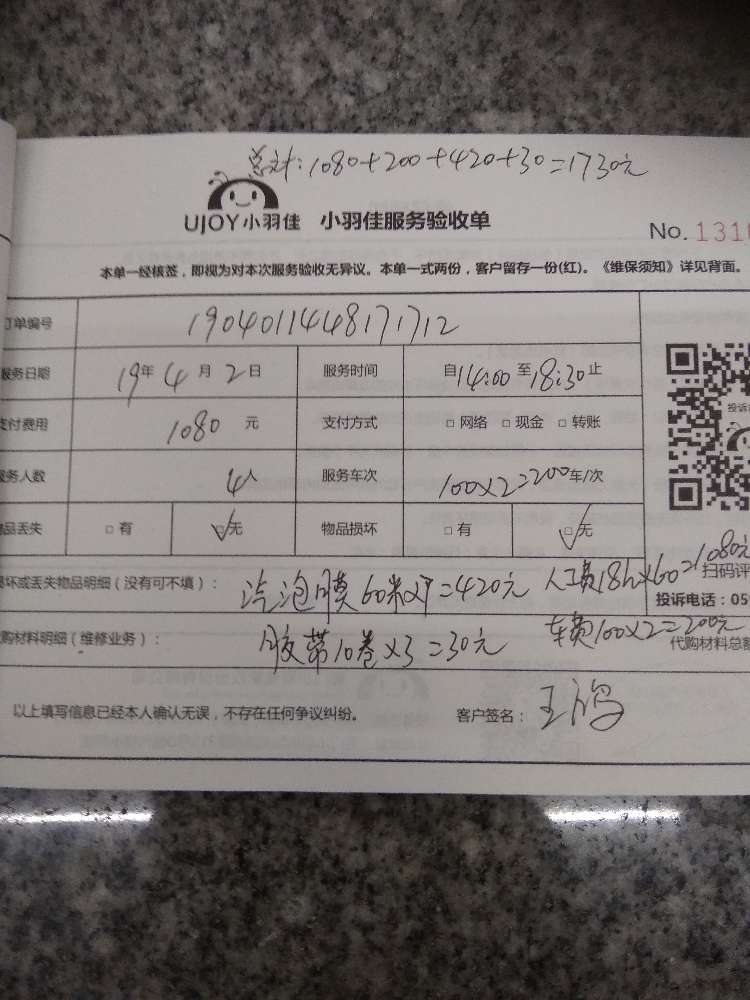 总计:1080+200+420+30=1730元
UJOY小羽佳 小羽佳服务验收单
No. 131
本单一经核签，即视为对本次服务验收无异议。本单一式两份，客户留存一份(红)。《维保须知》详见背面。
订单编号 1904011448171712
服务日期 19年4月2日 服务时间 自14:00至18:30止
支付费用 1080元 支付方式 □网络 □现金 □转账
服务人数 4人 服务车次 100×2=200车/次
物品丢失 □有 ☑无 物品损坏 □有 ☑无
投诉
损坏或丢失物品明细（没有可不填）： 汽泡膜60米×7=420元 人工费18h×60=1080元
扫码评
投诉电话：059
代购材料明细（维修业务）： 胶带10卷×3=30元 车费100×2=200元
代购材料总额
以上填写信息已经本人确认无误，不存在任何争议纠纷。 客户签名： 王